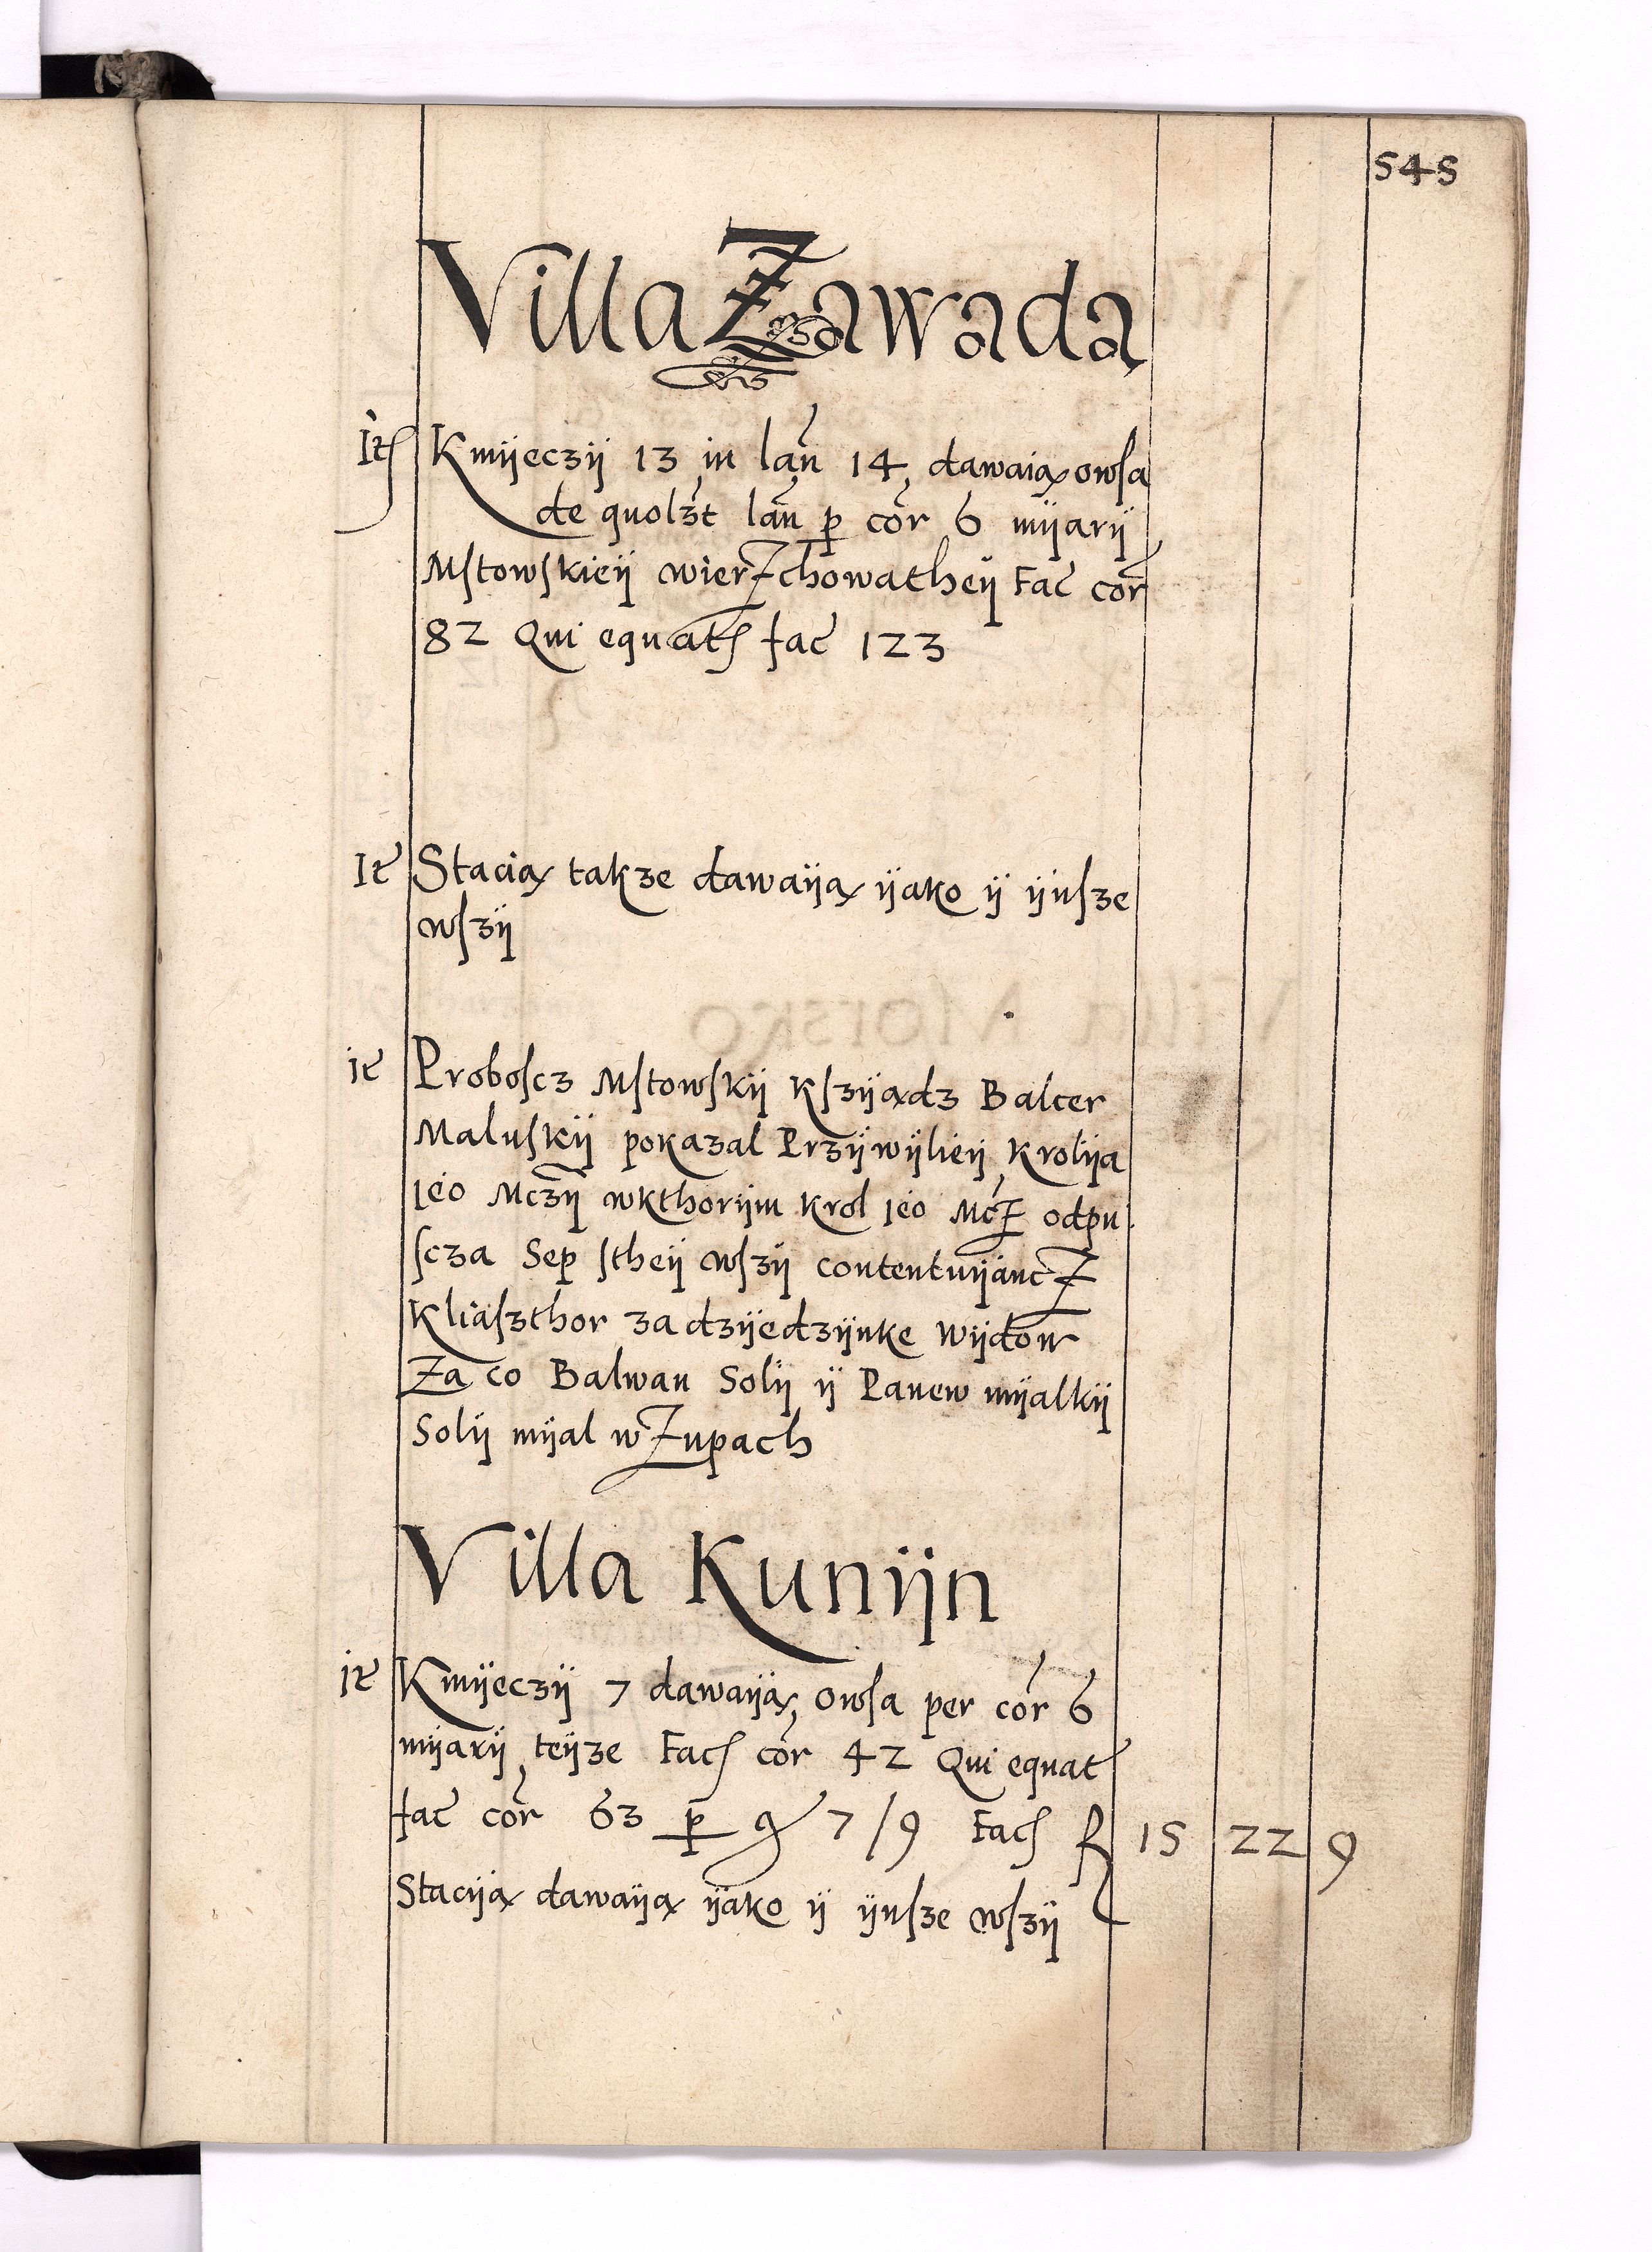 545
Villa Zawada
Itȩ Kmÿeczÿ 13 in lan̄ 14 dawaią owsa
de quolzt lan̄ p cor̄ 6 mÿarÿ
Mstowskieÿ wierzchowatheÿ Fac̄ cor̄
82 Qui equat fac̄ 123
It Stacią takze dawaÿą ÿako ÿ ÿnsze
wszÿ
it Proboscz Mstowskÿ kszÿądz Balcer
Maluskÿ pokazal Przÿwÿlieÿ krolÿa
ieo Mczÿ wkthorÿm krol ieo Mcz odpu
scza Sep stheÿ wszÿ contentuÿancz
Kliaszthor za dzÿedzÿnke Wÿdow
Za co Balwan Solÿ ÿ Panew mÿalkÿ
Solÿ mÿal w Zupach
Villa Kunÿn
it Kmÿeczÿ 7 dawaÿą owsa per cor̄ 6
mÿarÿ teÿze Fac cor̄ 42 Qui equat
fac̄ cor̄ 63 p g 7/9 Fac f 15 22 9
Staciją dawaÿą ÿako ÿ ÿnsze wszÿ